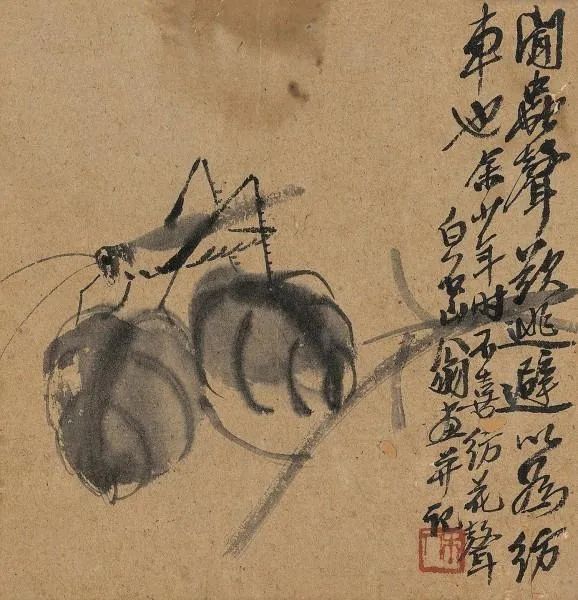 聞蟲聲欲逃避以為紡
車也余少年時不喜紡花聲
白石山翁畫并記
木人